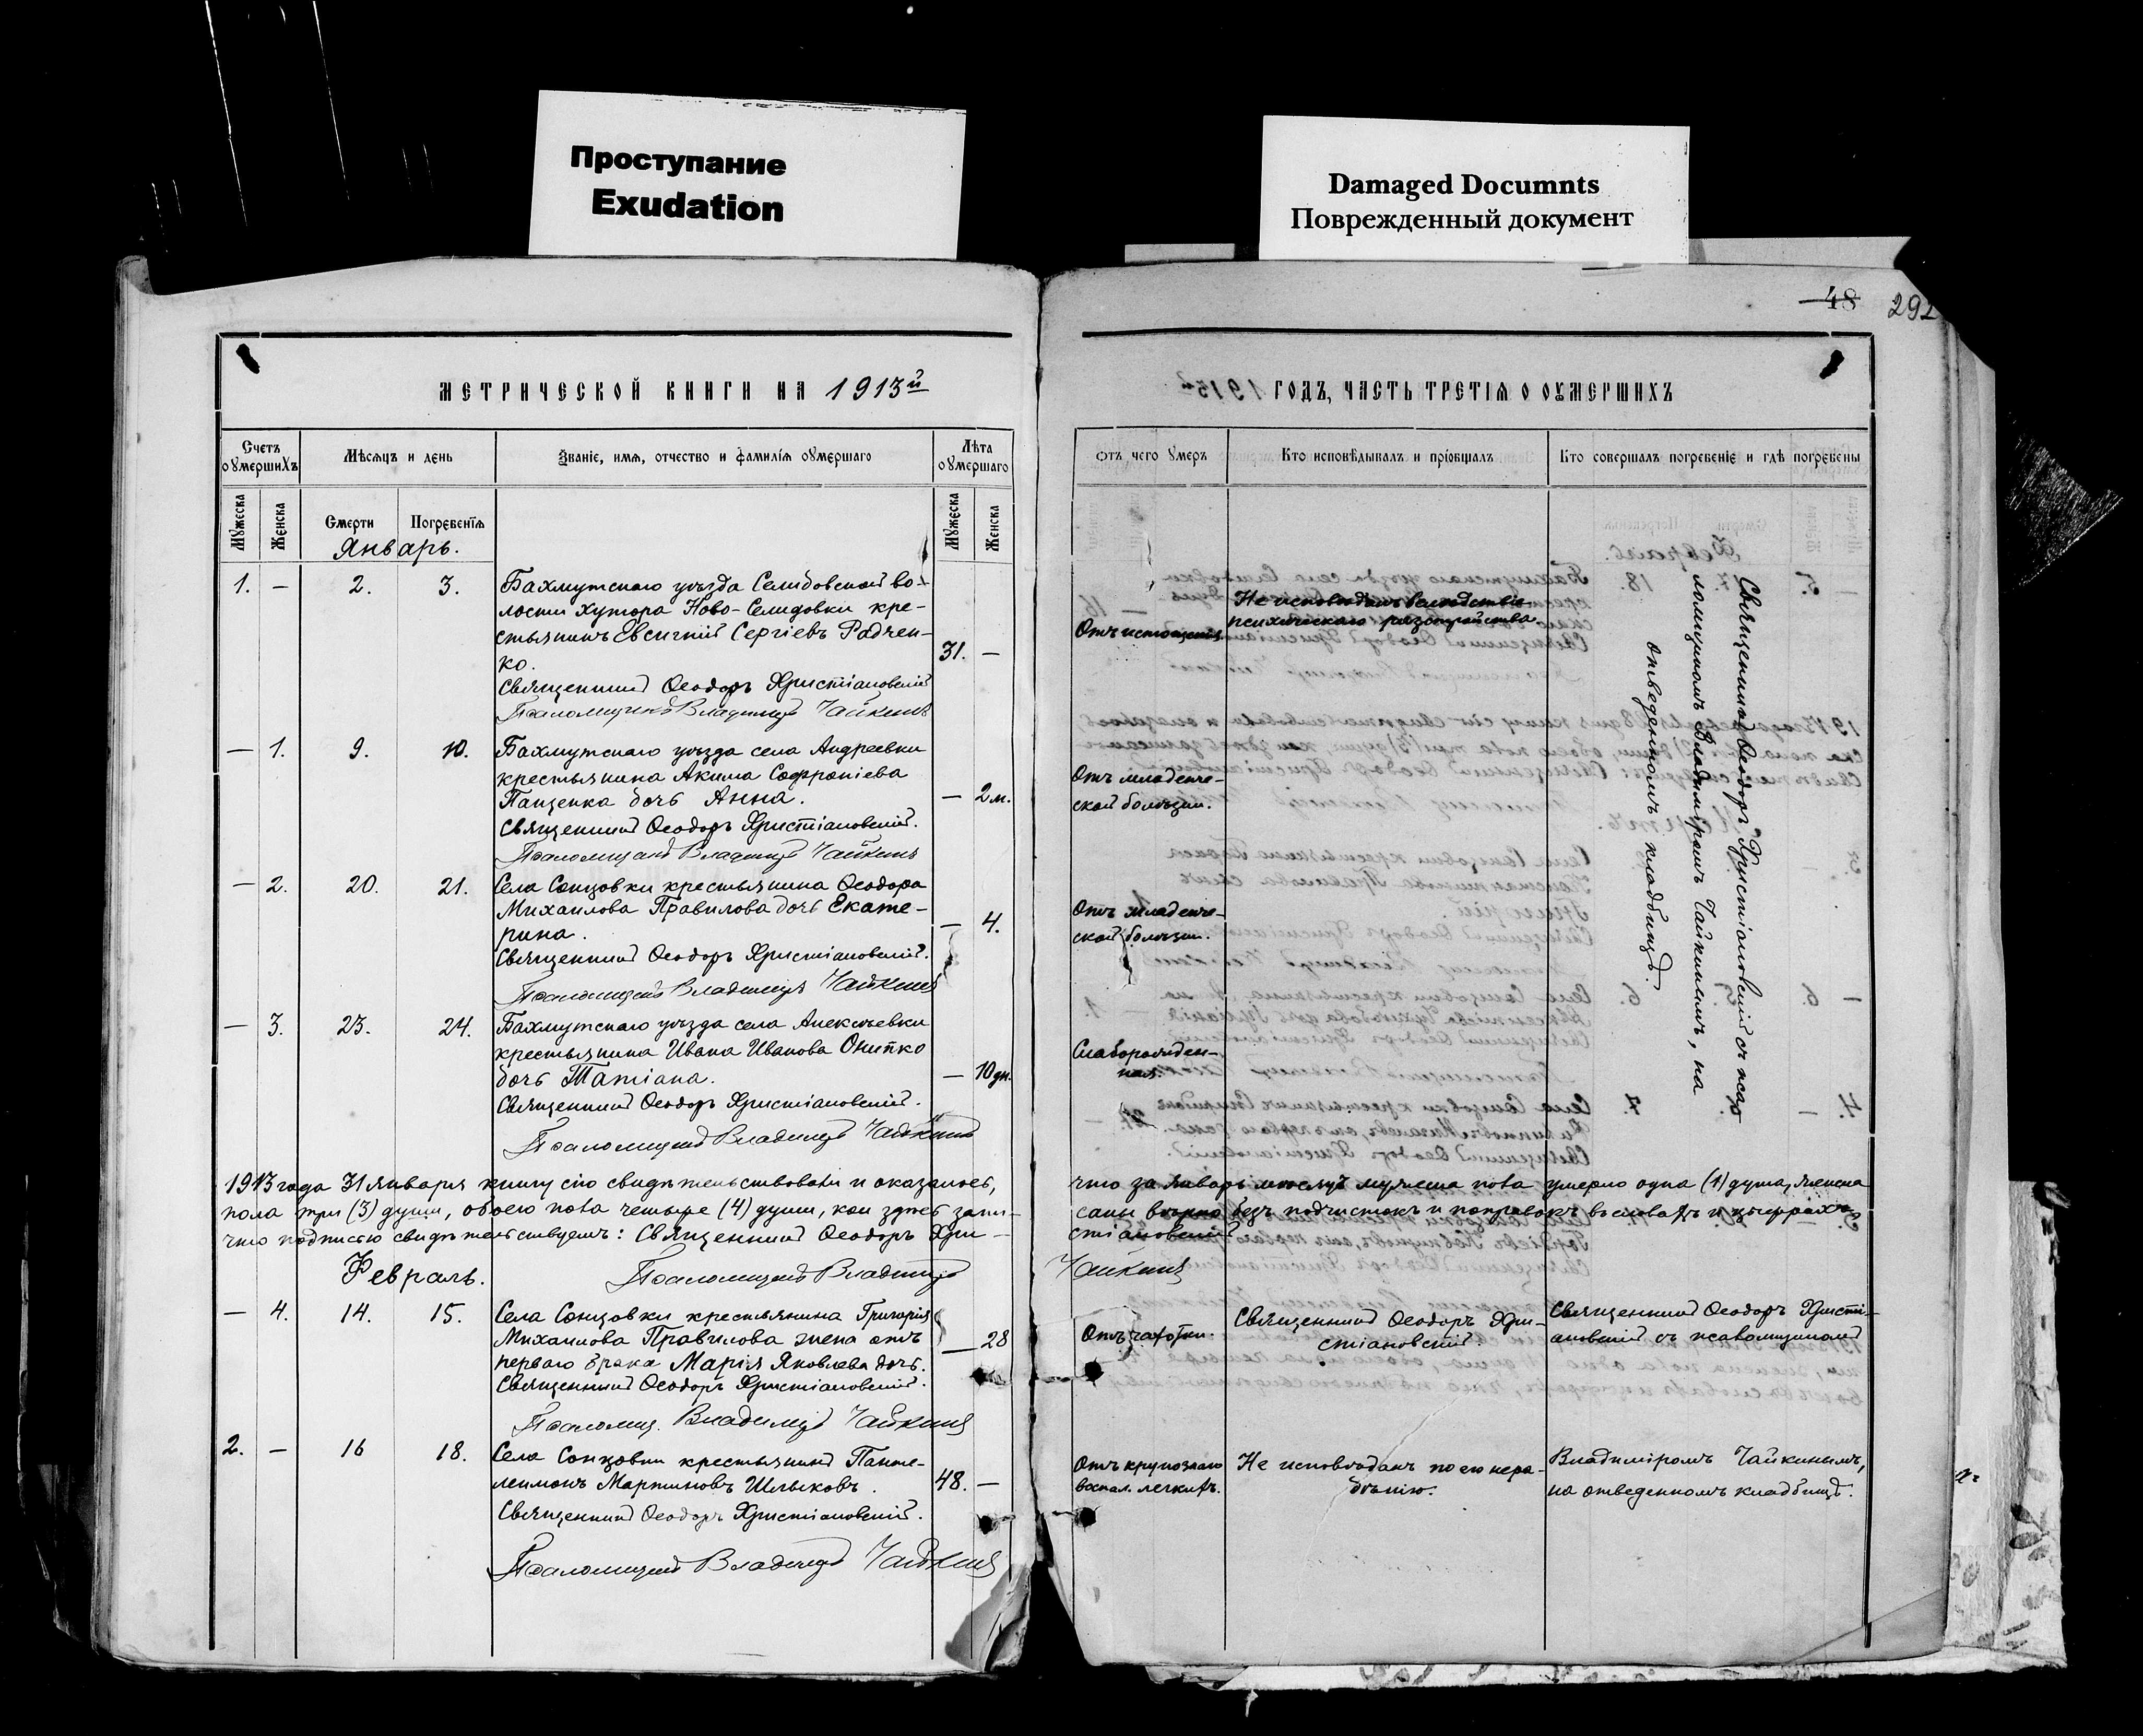 Проступание
Exudation
Damaged Documnts
Поврежденный документ
48 292
МЕТРИЧЕСКОЙ КНИГИ НА 1913й
ГОДЪ, ЧАСТЬ ТРЕТІЯ О ОУМЕРШИХЪ
Счетъ оумершихъ
Мѣсяцъ и день
Званіе, имя, отчество и фамилія оумершаго
Лѣта оумершаго
Отъ чего умеръ
Кто исповѣдывалъ и пріобщалъ
Кто совершалъ погребеніе и гдѣ погребены
Мужеска
Женска
Смерти
Погребенія
Мужеска
Женска
Январь.
1. — 2. 3. Бахмутскаго уѣзда Селидовской во-
лости хутора Ново-Селидовки кре-
стьянинъ Евсигній Сергіевъ Радчен-
ко. 31. —
Священникъ Ѳеодоръ Христіановскій
Псаломщикъ Владиміръ Чайкинъ
Отъ истощенія
Не исповѣданъ вслѣдствіе
психическаго разстройства
Священникъ Ѳеодоръ Христіановскій съ псаломщикомъ Владиміромъ Чайкинымъ, на
отведенномъ кладбищѣ.
— 1. 9. 10. Бахмутскаго уѣзда села Андреевки
крестьянина Акима Софроніева
Пащенка дочь Анна. — 2 м.
Священникъ Ѳеодоръ Христіановскій.
Псаломщикъ Владиміръ Чайкинъ
Отъ младенче-
ской болѣзни.
— 2. 20. 21. Села Сонцовки крестьянина Ѳеодора
Михаилова Правилова дочь Екате-
рина. — 4.
Священникъ Ѳеодоръ Христіановскій.
Псаломщикъ Владиміръ Чайкинъ
Отъ младенче-
ской болѣзни.
— 3. 23. 24. Бахмутскаго уѣзда села Алексѣевки
крестьянина Ивана Иванова Онипко
дочь Татіана. — 10 дн.
Священникъ Ѳеодоръ Христіановскій.
Псаломщикъ Владиміръ Чайкинъ
Слаборожден-
ная.
1913 года 31 Января книгу сію свидѣтельствовали и оказалось, что за Январь мѣсяцъ мужеска пола умерло одна (1) душа, женска
пола три (3) души, обоего пола четыре (4) души, кои здѣсь запи- саны вѣрно безъ подчистокъ и поправокъ въ словахъ и цыфрахъ,
что подписью свидѣтельствуемъ: Священникъ Ѳеодоръ Хри- стіановскій
Псаломщикъ Владиміръ Чайкинъ
Февраль.
— 4. 14. 15. Села Сонцовки крестьянина Григорія
Михаилова Правилова жена отъ
перваго брака Марія Яковлева дочь. — 28
Священникъ Ѳеодоръ Христіановскій.
Псаломщ. Владиміръ Чайкинъ
Отъ чахотки.
Священникъ Ѳеодоръ Хри-
стіановскій.
Священникъ Ѳеодоръ Христі-
ановскій съ псаломщикомъ
2. — 16 18. Села Сонцовки крестьянинъ Панте-
леимонъ Мартиновъ Шлыковъ. 48. —
Священникъ Ѳеодоръ Христіановскій.
Псаломщикъ Владиміръ Чайкинъ
Отъ крупознаго
воспал. легкихъ.
Не исповѣданъ по его нера-
дѣнію.
Владиміромъ Чайкинымъ,
на отведенномъ кладбищѣ.